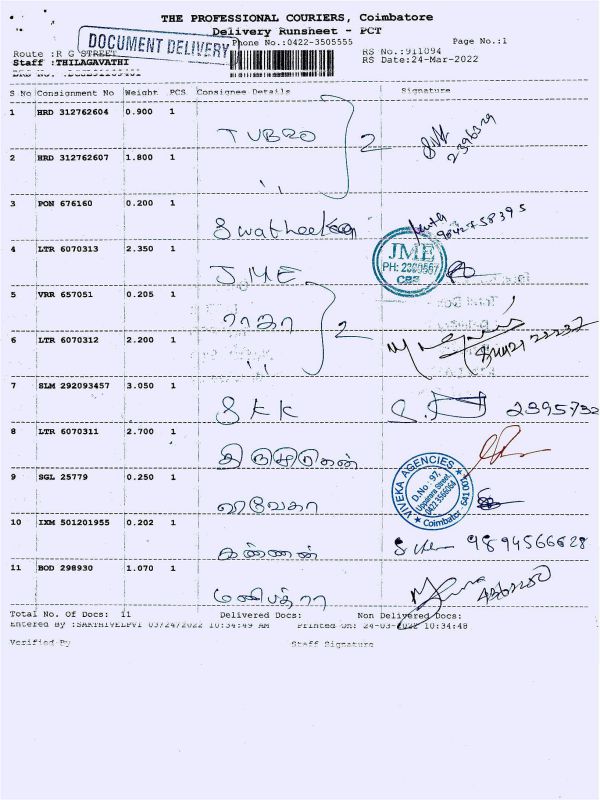 THE PROFESSIONAL COURIERS, Coimbatore
Delivery Runsheet - PCT
DOCUMENT DELIVERY
Phone No.:0422-3505555
Page No.:1
Route :R G STREET
RS No.:911094
Staff :THILAGAVATHI
RS Date:24-Mar-2022
S No Consignment No Weight PCS Consignee Details Signature
1 HRD 312762604 0.900 1
TUBRO 2
2396329
2 HRD 312762607 1.800 1
"
3 PON 676160 0.200 1
9042758395
4 LTR 6070313 2.350 1
JME
JME
PH: 2380567
CBE
5 VRR 657051 0.205 1
ராகா 2
6 LTR 6070312 2.200 1
"
7 SLM 292093457 3.050 1
SKK 2395732
8 LTR 6070311 2.700 1
9 SGL 25779 0.250 1
விவேகா
VIVEKA AGENCIES
D.No : 97,
Coimbator - 641 001
10 IXM 501201955 0.202 1
கண்ணன் 9894566628
11 BOD 298930 1.070 1
Total No. Of Docs: 11 Delivered Docs: Non Delivered Docs:
Entered By :SAKTHIVELPVT 03/24/2022 10:34:49 AM Printed On: 24-03-2022 10:34:48
Verified By Staff Signature